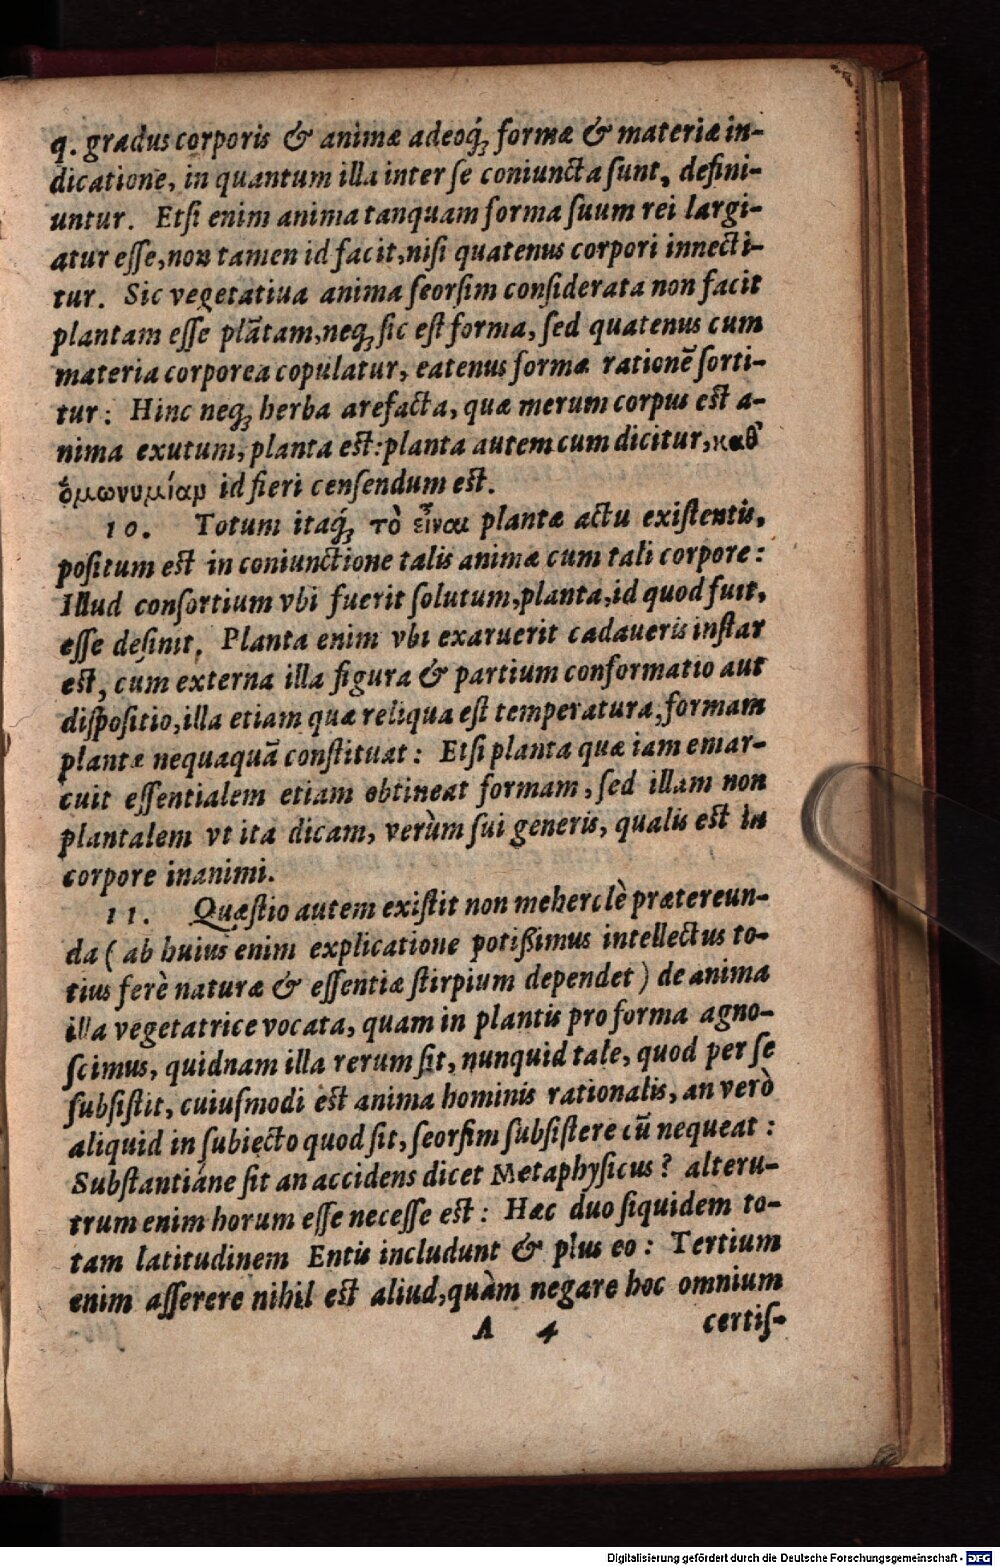 q. gradus corporis & animæ adeoq́ꝫ formæ & materiæ in-
dicatione, in quantum illa inter se coniuncta sunt, defini-
untur. Etsi enim anima tanquam forma suum rei largi-
atur esse, non tamen id facit, nisi quatenus corpori innecti-
tur. Sic vegetatiua anima seorsim considerata non facit
plantam esse plãtam, neqꝫ sic est forma, sed quatenus cum
materia corporea copulatur, eatenus formæ rationẽ sorti-
tur: Hinc neqꝫ herba arefacta, quæ merum corpus est a-
nima exutum, planta est: planta autem cum dicitur, καθ'
ὁμωνυμίαν id fieri censendum est.
10. Totum itaq́ꝫ τὸ εἶναι plantæ actu existentis,
positum est in coniunctione talis animæ cum tali corpore:
Illud consortium vbi fuerit solutum, planta, id quod fuit,
esse desinit. Planta enim vbi exaruerit cadaueris instar
est, cum externa illa figura & partium conformatio aut
dispositio, illa etiam quæ reliqua est temperatura, formam
plantæ nequaquã constituat: Etsi planta quæ iam emar-
cuit essentialem etiam obtineat formam, sed illam non
plantalem vt ita dicam, verùm sui generis, qualis est in
corpore inanimi.
11. Quæstio autem existit non meherclè prætereun-
da (ab huius enim explicatione potißimus intellectus to-
tius ferè naturæ & essentiæ stirpium dependet) de anima
illa vegetatrice vocata, quam in plantis pro forma agno-
scimus, quidnam illa rerum sit, nunquid tale, quod per se
subsistit, cuiusmodi est anima hominis rationalis, an verò
aliquid in subiecto quod sit, seorsim subsistere cũ nequeat:
Substantiáne sit an accidens dicet Metaphysicus? alteru-
trum enim horum esse necesse est: Hæc duo siquidem to-
tam latitudinem Entis includunt & plus eo: Tertium
enim asserere nihil est aliud, quàm negare hoc omnium
A 4 certis-
Digitalisierung gefördert durch die Deutsche Forschungsgemeinschaft - DFG